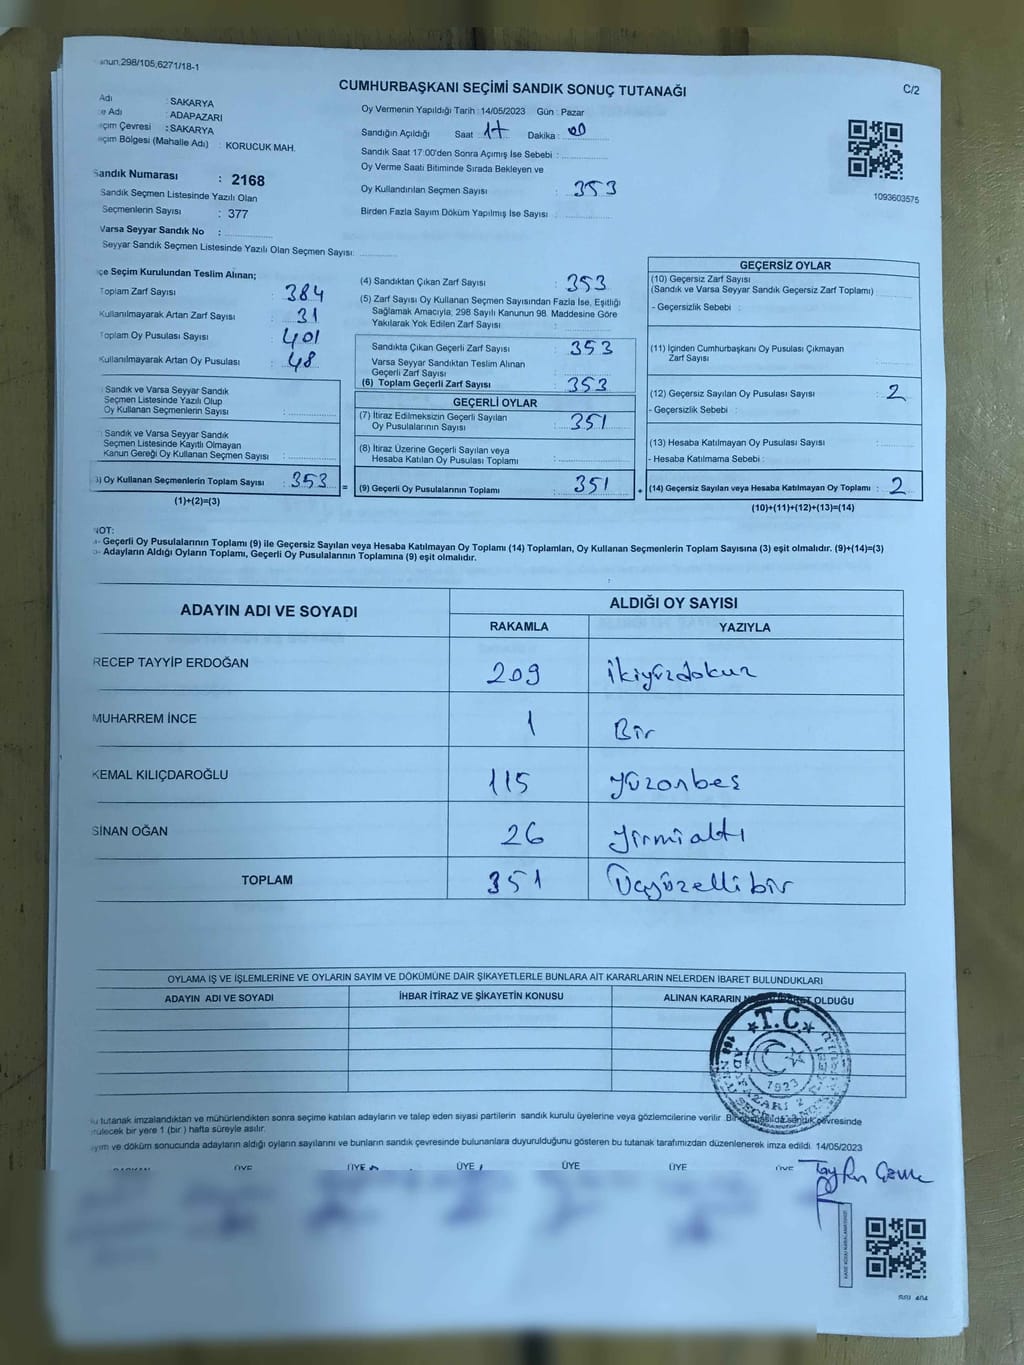 anun,298/105,6271/18-1
CUMHURBAŞKANI SEÇİMİ SANDIK SONUÇ TUTANAĞI
C/2
Adı : SAKARYA
e Adı : ADAPAZARI
çim Çevresi : SAKARYA
çim Bölgesi (Mahalle Adı) : KORUCUK MAH.
Sandık Numarası : 2168
Sandık Seçmen Listesinde Yazılı Olan
Seçmenlerin Sayısı : 377
Varsa Seyyar Sandık No :
Seyyar Sandık Seçmen Listesinde Yazılı Olan Seçmen Sayısı:
Oy Vermenin Yapıldığı Tarih : 14/05/2023 Gün : Pazar
Sandığın Açıldığı Saat : 17 Dakika : 00
Sandık Saat 17:00'den Sonra Açımış İse Sebebi :
Oy Verme Saati Bitiminde Sırada Bekleyen ve
Oy Kullandırılan Seçmen Sayısı : 353
Birden Fazla Sayım Döküm Yapılmış İse Sayısı :
1093603575
çe Seçim Kurulundan Teslim Alınan;
Toplam Zarf Sayısı : 384
Kullanılmayarak Artan Zarf Sayısı : 31
Toplam Oy Pusulası Sayısı : 401
Kullanılmayarak Artan Oy Pusulası : 48
Sandık ve Varsa Seyyar Sandık
Seçmen Listesinde Yazılı Olup
Oy Kullanan Seçmenlerin Sayısı :
Sandık ve Varsa Seyyar Sandık
Seçmen Listesinde Kayıtlı Olmayan
Kanun Gereği Oy Kullanan Seçmen Sayısı :
) Oy Kullanan Seçmenlerin Toplam Sayısı : 353 =
(1)+(2)=(3)
(4) Sandıktan Çıkan Zarf Sayısı : 353
(5) Zarf Sayısı Oy Kullanan Seçmen Sayısından Fazla İse, Eşitliği
Sağlamak Amacıyla, 298 Sayılı Kanunun 98. Maddesine Göre
Yakılarak Yok Edilen Zarf Sayısı :
Sandıkta Çıkan Geçerli Zarf Sayısı : 353
Varsa Seyyar Sandıktan Teslim Alınan
Geçerli Zarf Sayısı :
(6) Toplam Geçerli Zarf Sayısı : 353
GEÇERLİ OYLAR
(7) İtiraz Edilmeksizin Geçerli Sayılan
Oy Pusulalarının Sayısı : 351
(8) İtiraz Üzerine Geçerli Sayılan veya
Hesaba Katılan Oy Pusulası Toplamı :
(9) Geçerli Oy Pusulalarının Toplamı : 351 +
GEÇERSİZ OYLAR
(10) Geçersiz Zarf Sayısı
(Sandık ve Varsa Seyyar Sandık Geçersiz Zarf Toplamı) :
- Geçersizlik Sebebi :
(11) İçinden Cumhurbaşkanı Oy Pusulası Çıkmayan
Zarf Sayısı :
(12) Geçersiz Sayılan Oy Pusulası Sayısı : 2
- Geçersizlik Sebebi :
(13) Hesaba Katılmayan Oy Pusulası Sayısı :
- Hesaba Katılmama Sebebi :
(14) Geçersiz Sayılan veya Hesaba Katılmayan Oy Toplamı : 2
(10)+(11)+(12)+(13)=(14)
NOT:
- Geçerli Oy Pusulalarının Toplamı (9) ile Geçersiz Sayılan veya Hesaba Katılmayan Oy Toplamı (14) Toplamları, Oy Kullanan Seçmenlerin Toplam Sayısına (3) eşit olmalıdır. (9)+(14)=(3)
- Adayların Aldığı Oyların Toplamı, Geçerli Oy Pusulalarının Toplamına (9) eşit olmalıdır.
ADAYIN ADI VE SOYADI
ALDIĞI OY SAYISI
RAKAMLA YAZIYLA
RECEP TAYYİP ERDOĞAN 209 ikiyüzdokuz
MUHARREM İNCE 1 Bir
KEMAL KILIÇDAROĞLU 115 yüzonbeş
SİNAN OĞAN 26 yirmialtı
TOPLAM 351 Üçyüzellibir
OYLAMA İŞ VE İŞLEMLERİNE VE OYLARIN SAYIM VE DÖKÜMÜNE DAİR ŞİKAYETLERLE BUNLARA AİT KARARLARIN NELERDEN İBARET BULUNDUKLARI
ADAYIN ADI VE SOYADI İHBAR İTİRAZ VE ŞİKAYETİN KONUSU ALINAN KARARIN OLDUĞU
T.C.
1923
tutanak imzalandıktan ve mühürlendikten sonra seçime katılan adayların ve talep eden siyasi partilerin sandık kurulu üyelerine veya gözlemcilerine verilir. Bir sandık çevresinde
rülecek bir yere 1 (bir ) hafta süreyle asılır.
yım ve döküm sonucunda adayların aldığı oyların sayılarını ve bunların sandık çevresinde bulunanlara duyurulduğunu gösteren bu tutanak tarafımızdan düzenlenerek imza edildi. 14/05/2023
ÜYE ÜYE ÜYE ÜYE ÜYE ÜYE